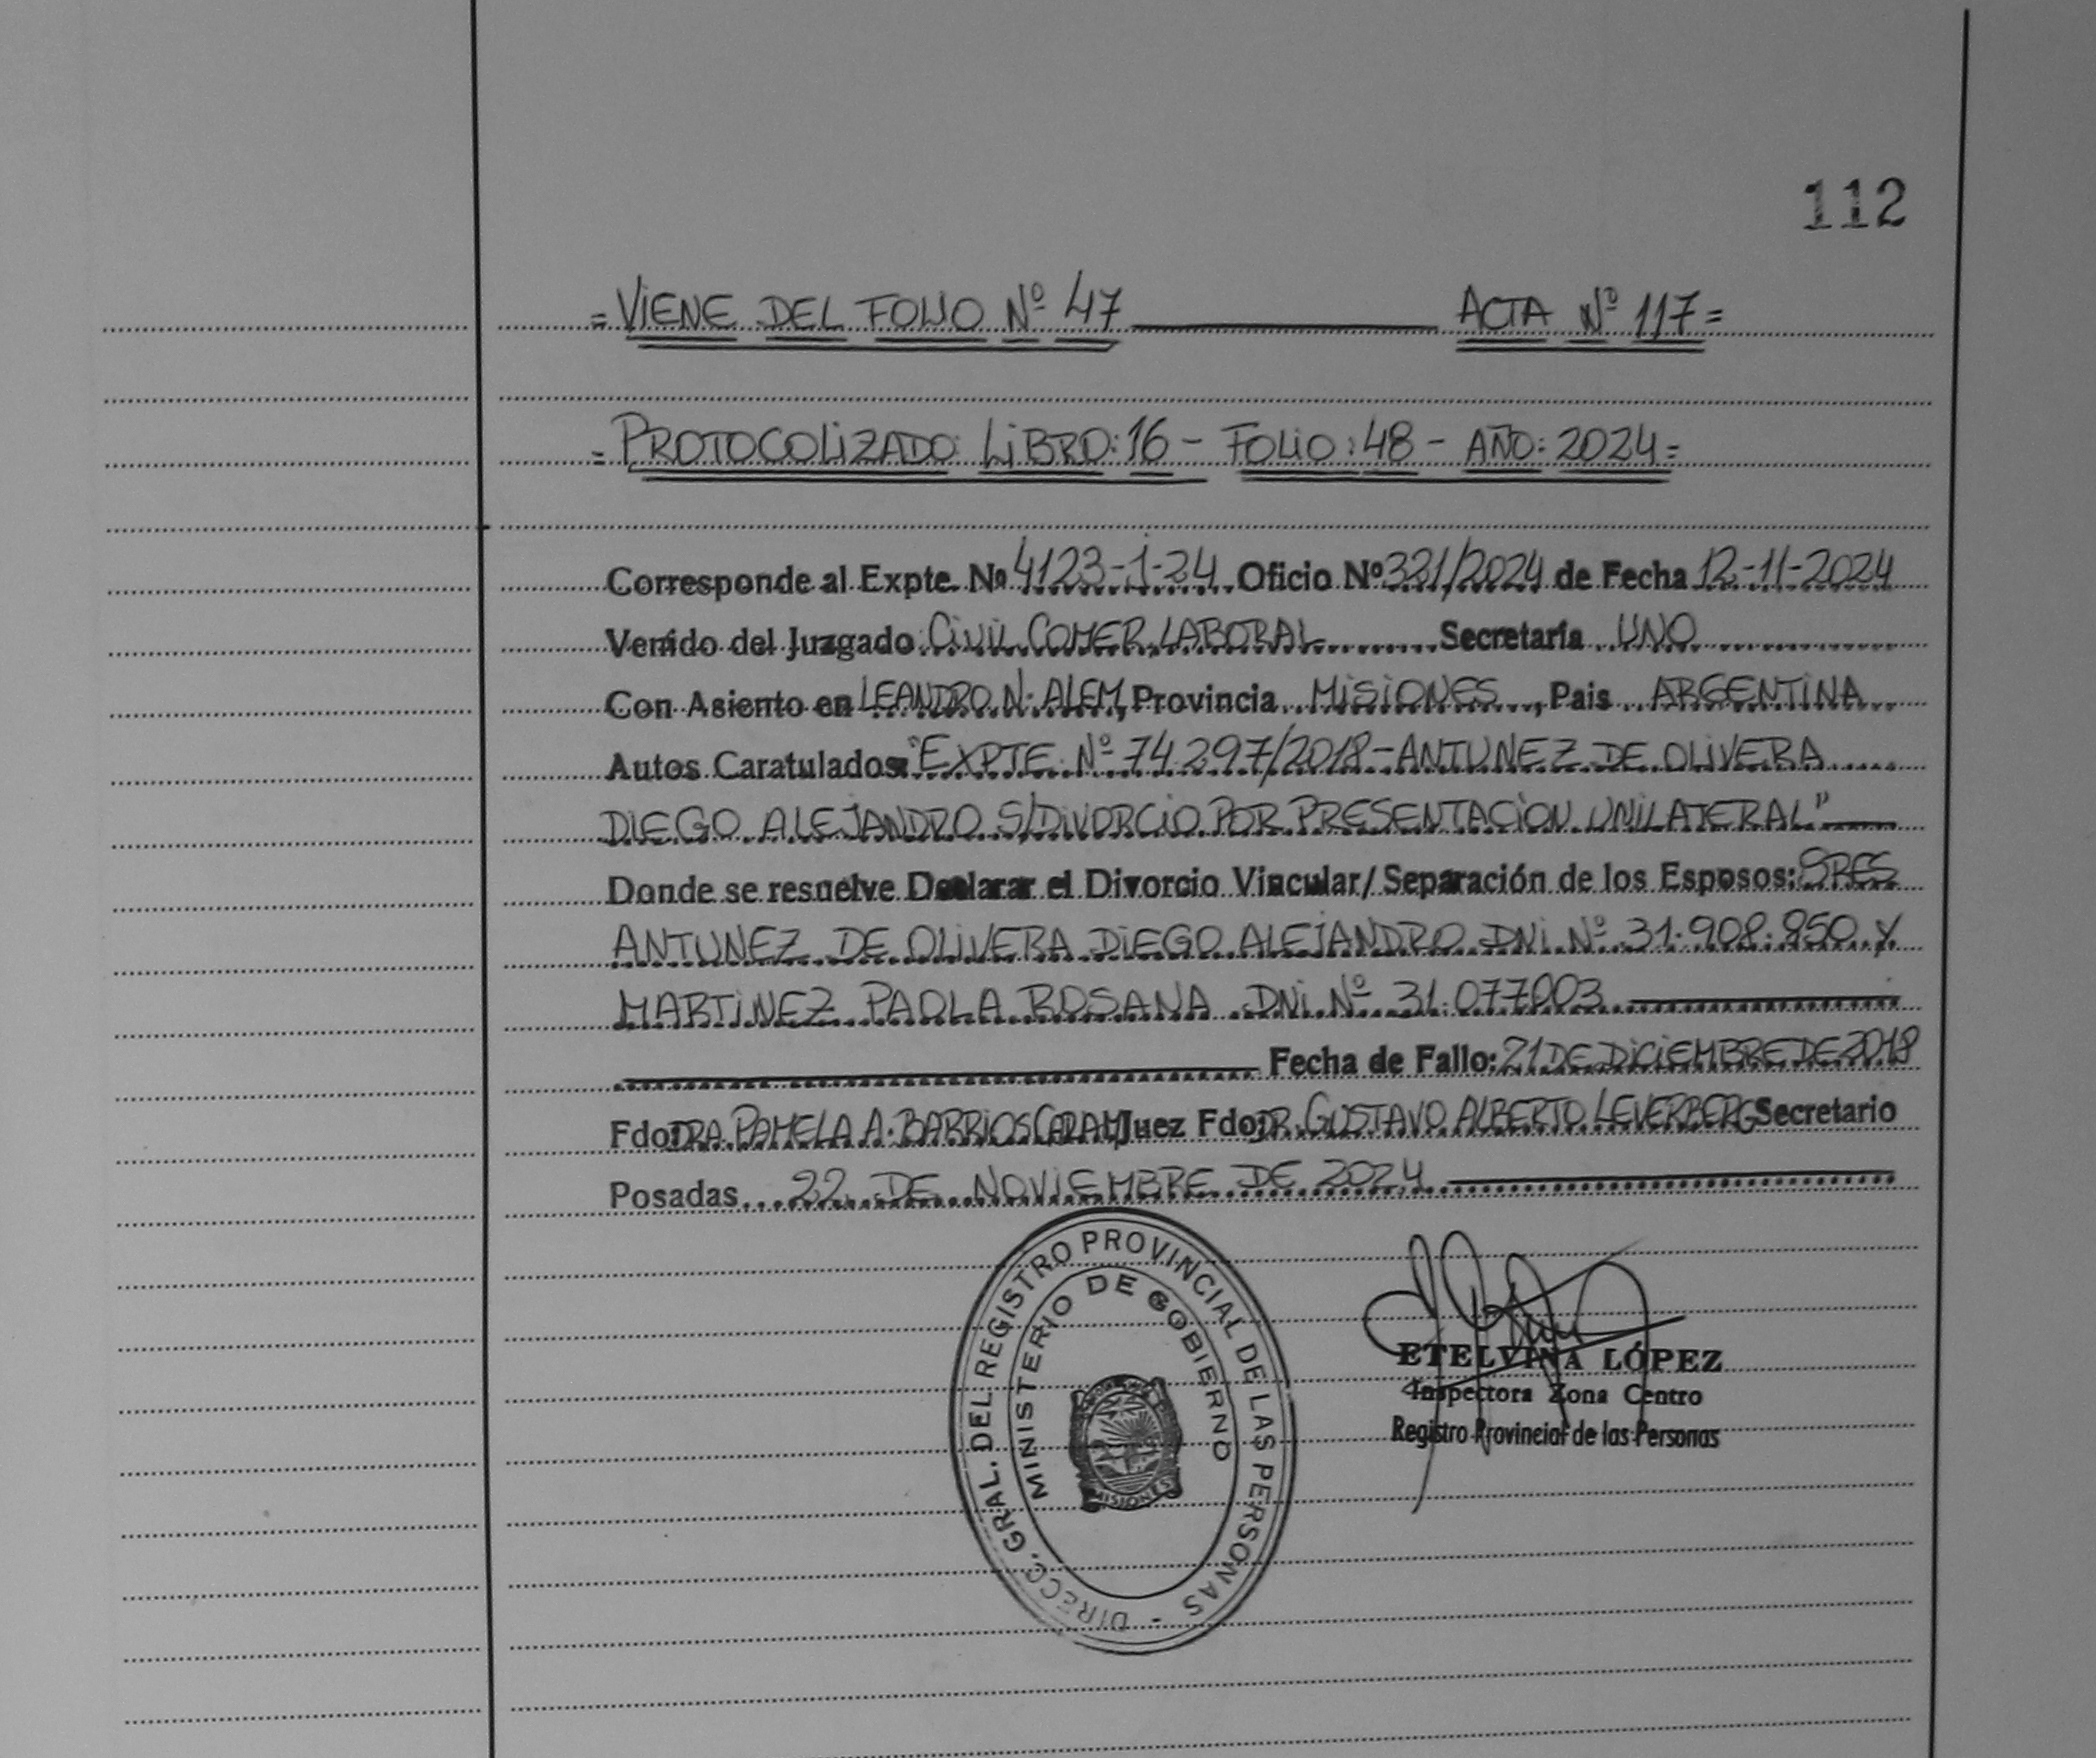 112
=VIENE DEL FOLIO Nº 47 ACTA Nº 117=
=PROTOCOLIZADO: LIBRO: 16 - FOLIO: 48 - AÑO: 2024=
Corresponde al Expte. Nº 4123-J-24 Oficio Nº 321/2024 de Fecha 12-11-2024
Venido del Juzgado CIVIL, COMER, LABORAL Secretaría UNO
Con Asiento en LEANDRO N. ALEM, Provincia MISIONES, Pais ARGENTINA
Autos Caratulados: "EXPTE. Nº 74.297/2018-ANTUNEZ DE OLIVERA
DIEGO ALEJANDRO S/DIVORCIO POR PRESENTACIÓN UNILATERAL"
Donde se resuelve Declarar el Divorcio Vincular/Separación de los Esposos: SRES
ANTUNEZ DE OLIVERA DIEGO ALEJANDRO DNI. Nº 31.908.850 Y
MARTINEZ PAOLA ROSANA DNI. Nº 31.077.003
Fecha de Fallo: 21 DE DICIEMBRE DE 2018
Fdo: DRA. PAMELA A. BARRIOS Juez Fdo: DR. GUSTAVO ALBERTO LEVERBERG Secretario
Posadas 22 DE NOVIEMBRE DE 2024
DIRECC. GRAL. DEL REGISTRO PROVINCIAL DE LAS PERSONAS -
MINISTERIO DE GOBIERNO
MISIONES
ETELVINA LÓPEZ
Inspectora Zona Centro
Registro Provincial de las Personas